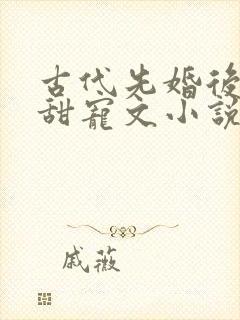 古代先婚後
甜寵文小說
戚薇